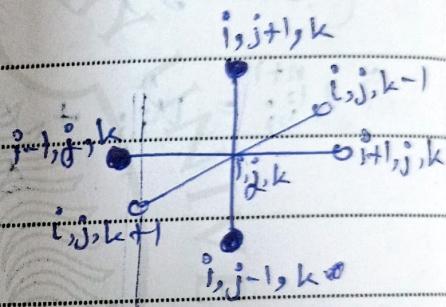 i,j+1,k
i,j,k-1
i-1,j,k
i+1,j,k
i,j,k
i,j,k+1
i,j-1,k